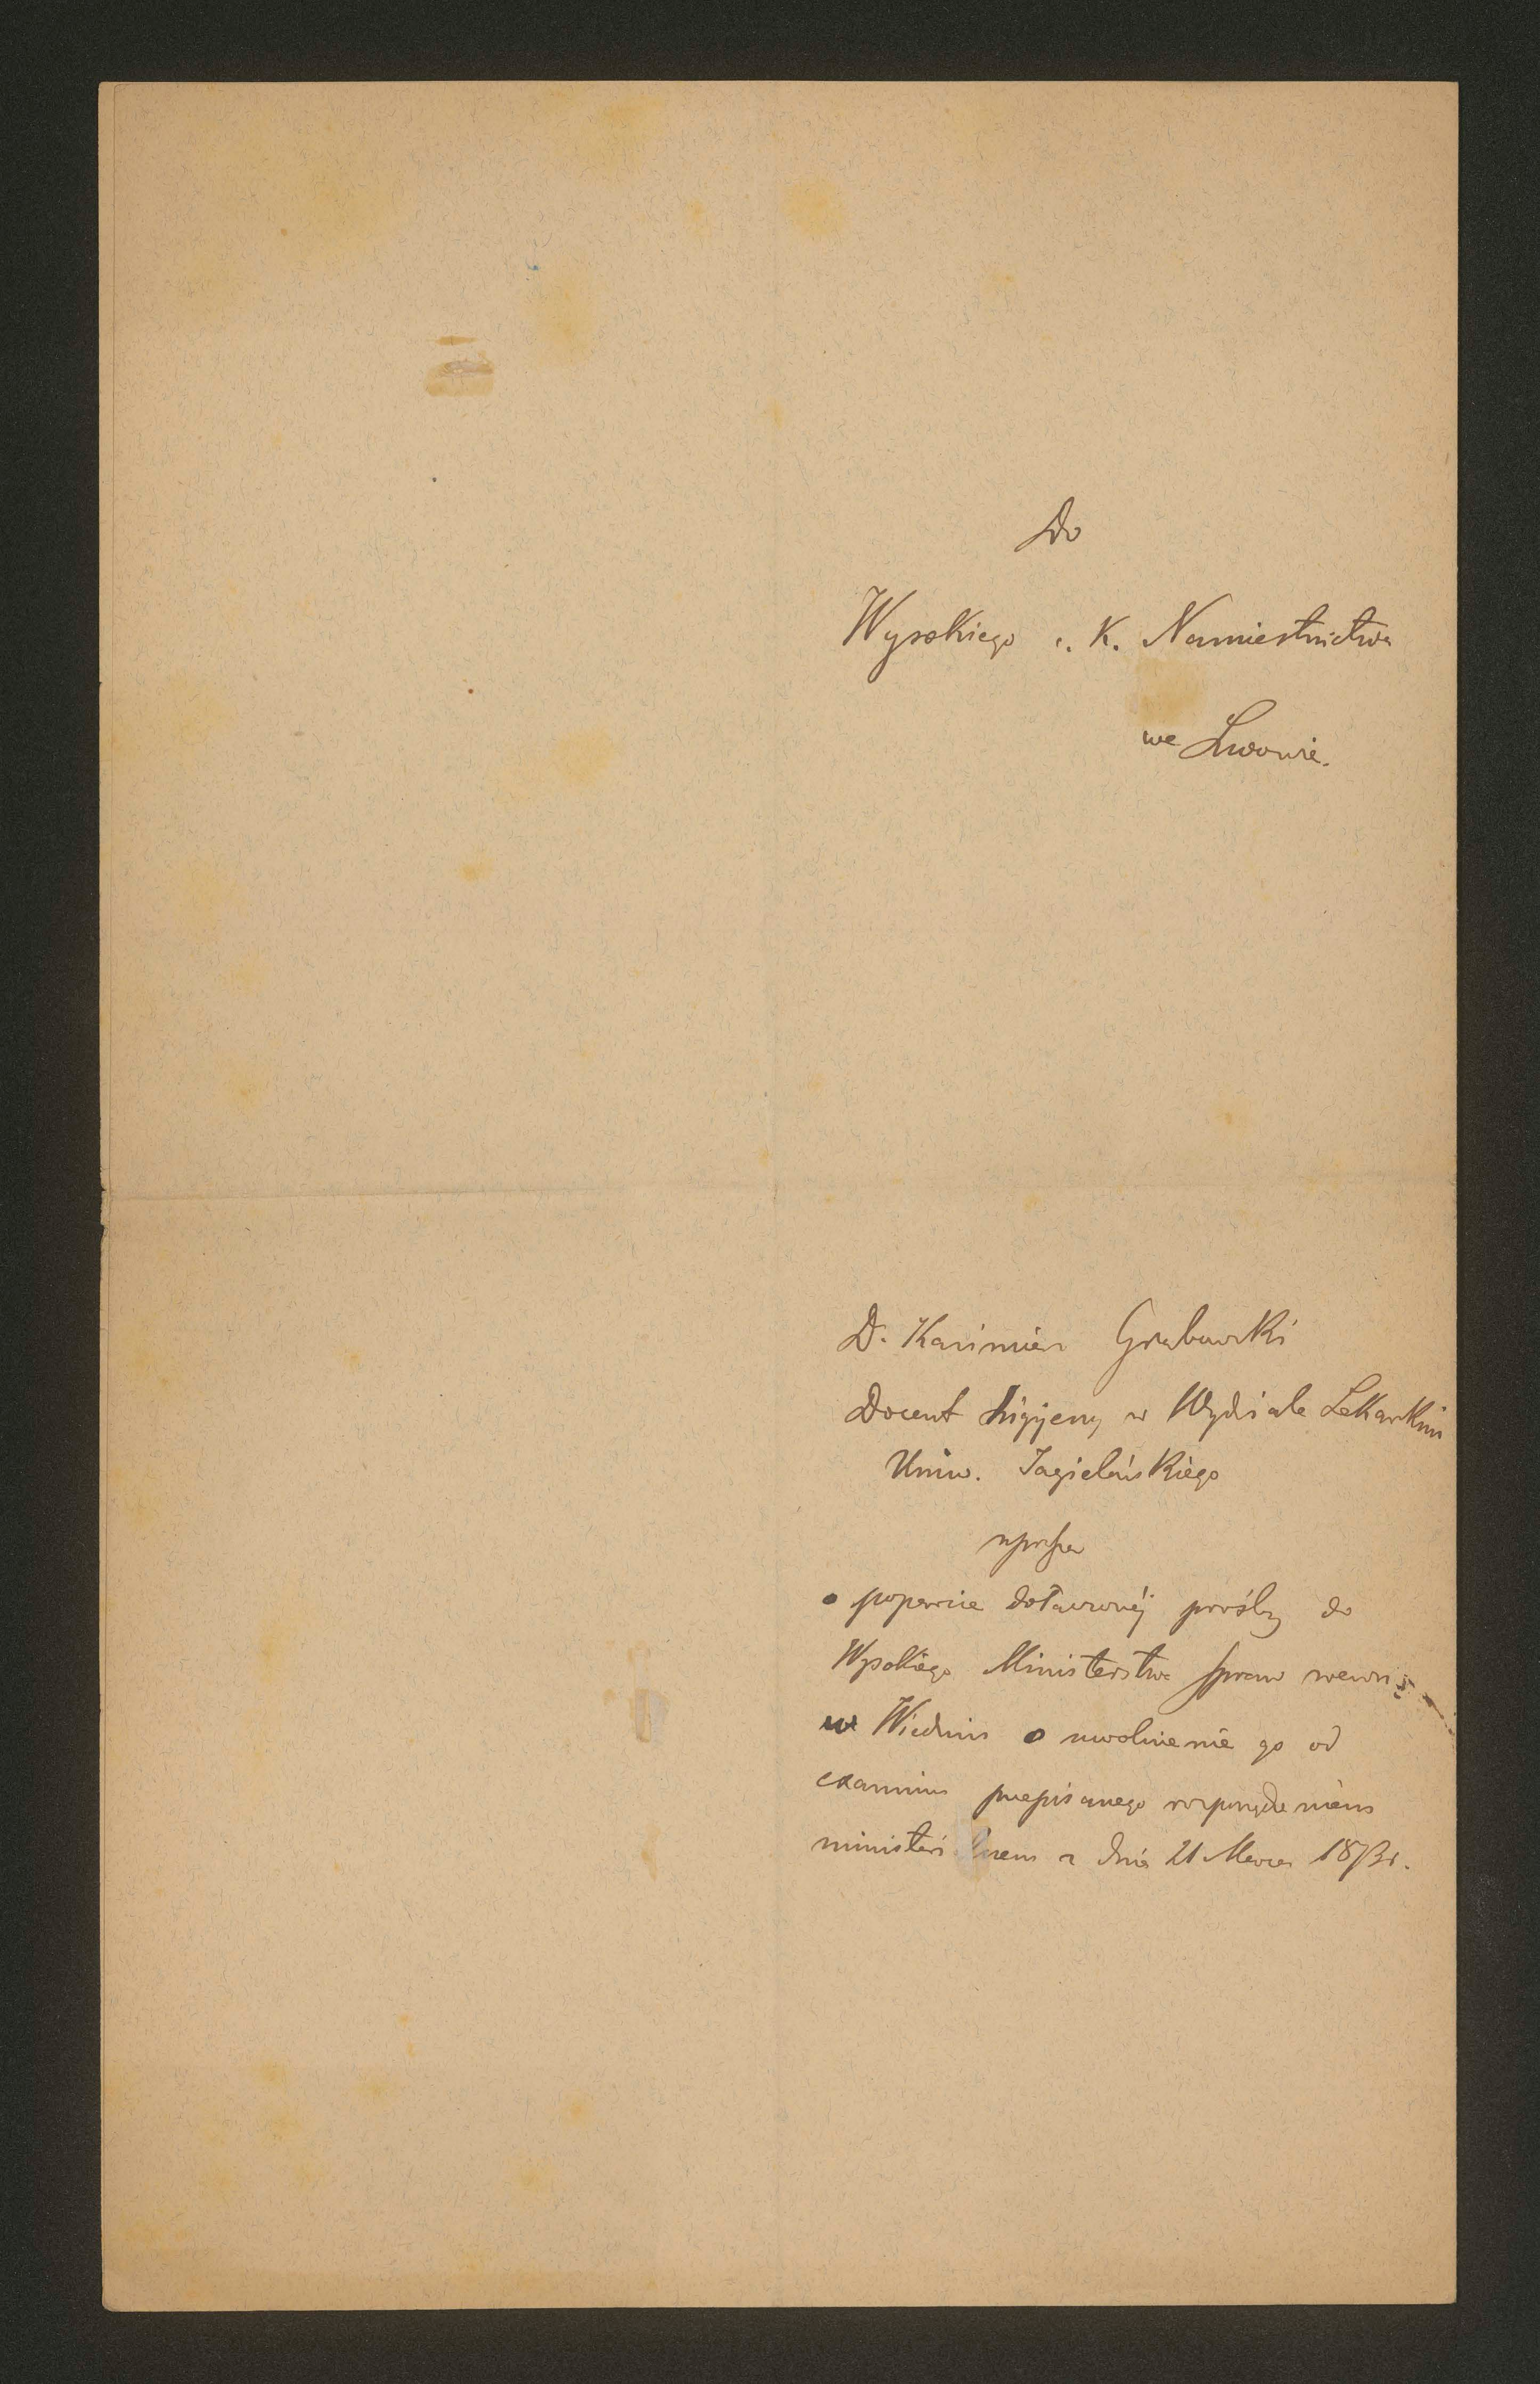 Do
Wysokiego c. K. Namiestnictwa
we Lwowie.
D. Kazimierz Grabowski
Docent higijeny w Wydziale Lekarskim
Uniw. Jagielońskiego
uprasza
o poparcie dołączonéj prośby do
Wysokiego Ministerstwa spraw wewn:
we Wiedniu o uwolnienie go od
examinu przepisanego rozporządzeniem
ministeri lnem z dnia 21 Marca 1873 r.